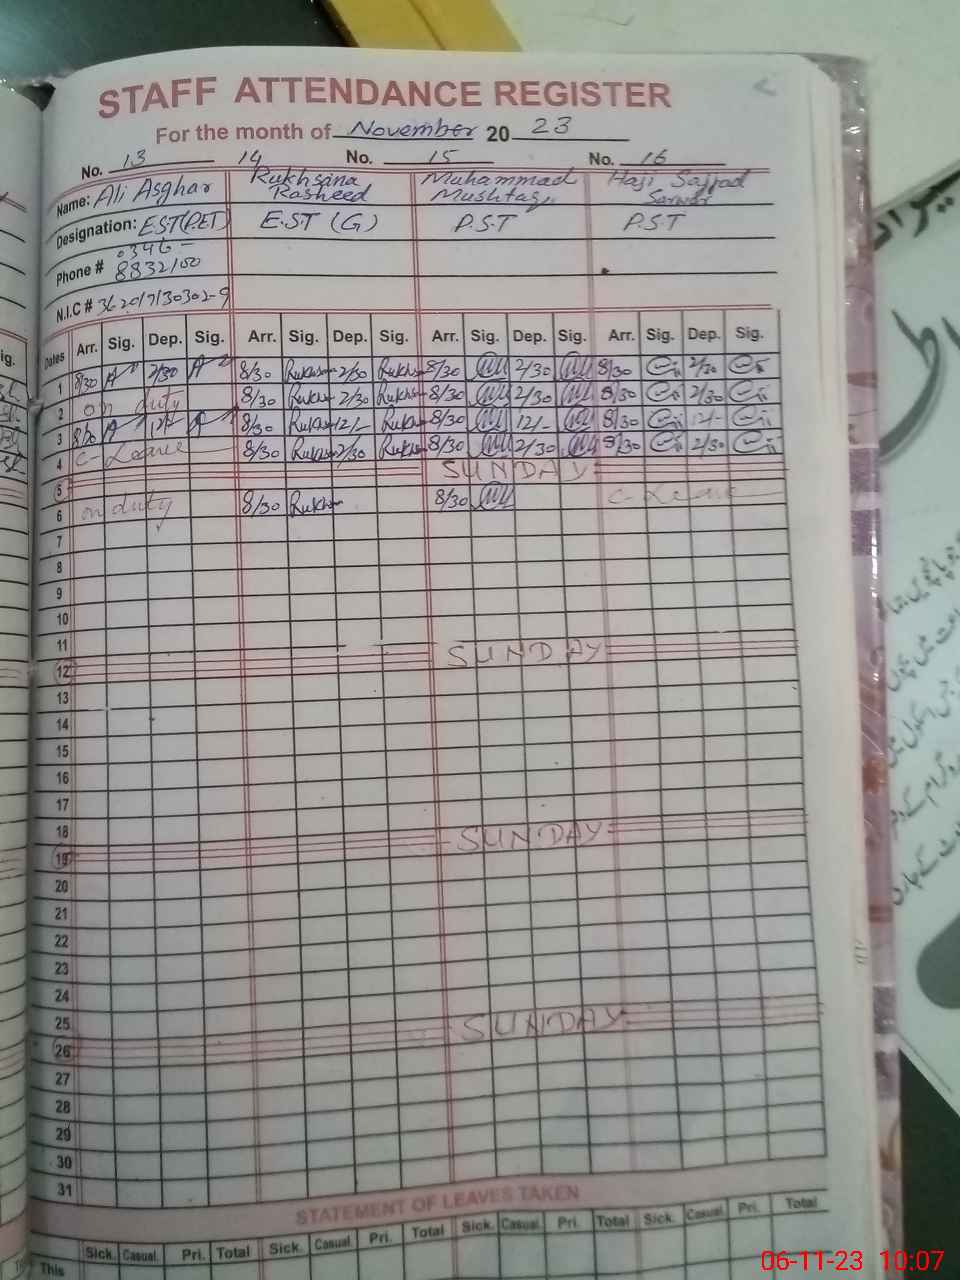 STAFF ATTENDANCE REGISTER
For the month of November 20 23
No. 13 14 No. 15 No. 16
Name: Ali Asghar Rukhsana Rasheed Muhammad Mushtaq Haji Sajjad Sarwar
Designation: E.S.T (P.E.T) E.S.T (G) P.S.T P.S.T
Phone # 0346-8832100
N.I.C #
Dates Arr. Sig. Dep. Sig. Arr. Sig. Dep. Sig. Arr. Sig. Dep. Sig. Arr. Sig. Dep. Sig.
1 8/30 2/30 8/30 Rukhs 2/30 Rukhs 8/30 2/30 8/30 2/30
2 on duty 8/30 Rukhs 2/30 Rukhs 8/30 2/30 8/30 2/30
3 8/30 12/- 8/30 Rukhs 12/- Rukhs 8/30 12/- 8/30 12/-
4 C-Leave 8/30 Rukhs 2/30 Rukhs 8/30 2/30 8/30 2/30
5 SUNDAY
6 on duty 8/30 Rukhs 8/30 C-Leave
7
8
9
10
11
12 SUNDAY
13
14
15
16
17
18
19 SUNDAY
20
21
22
23
24
25
26 SUNDAY
27
28
29
30
31
STATEMENT OF LEAVES TAKEN
Sick. Casual. Pri. Total Sick. Casual. Pri. Total Sick. Casual. Pri. Total Sick. Casual. Pri. Total
This
06-11-23 10:07